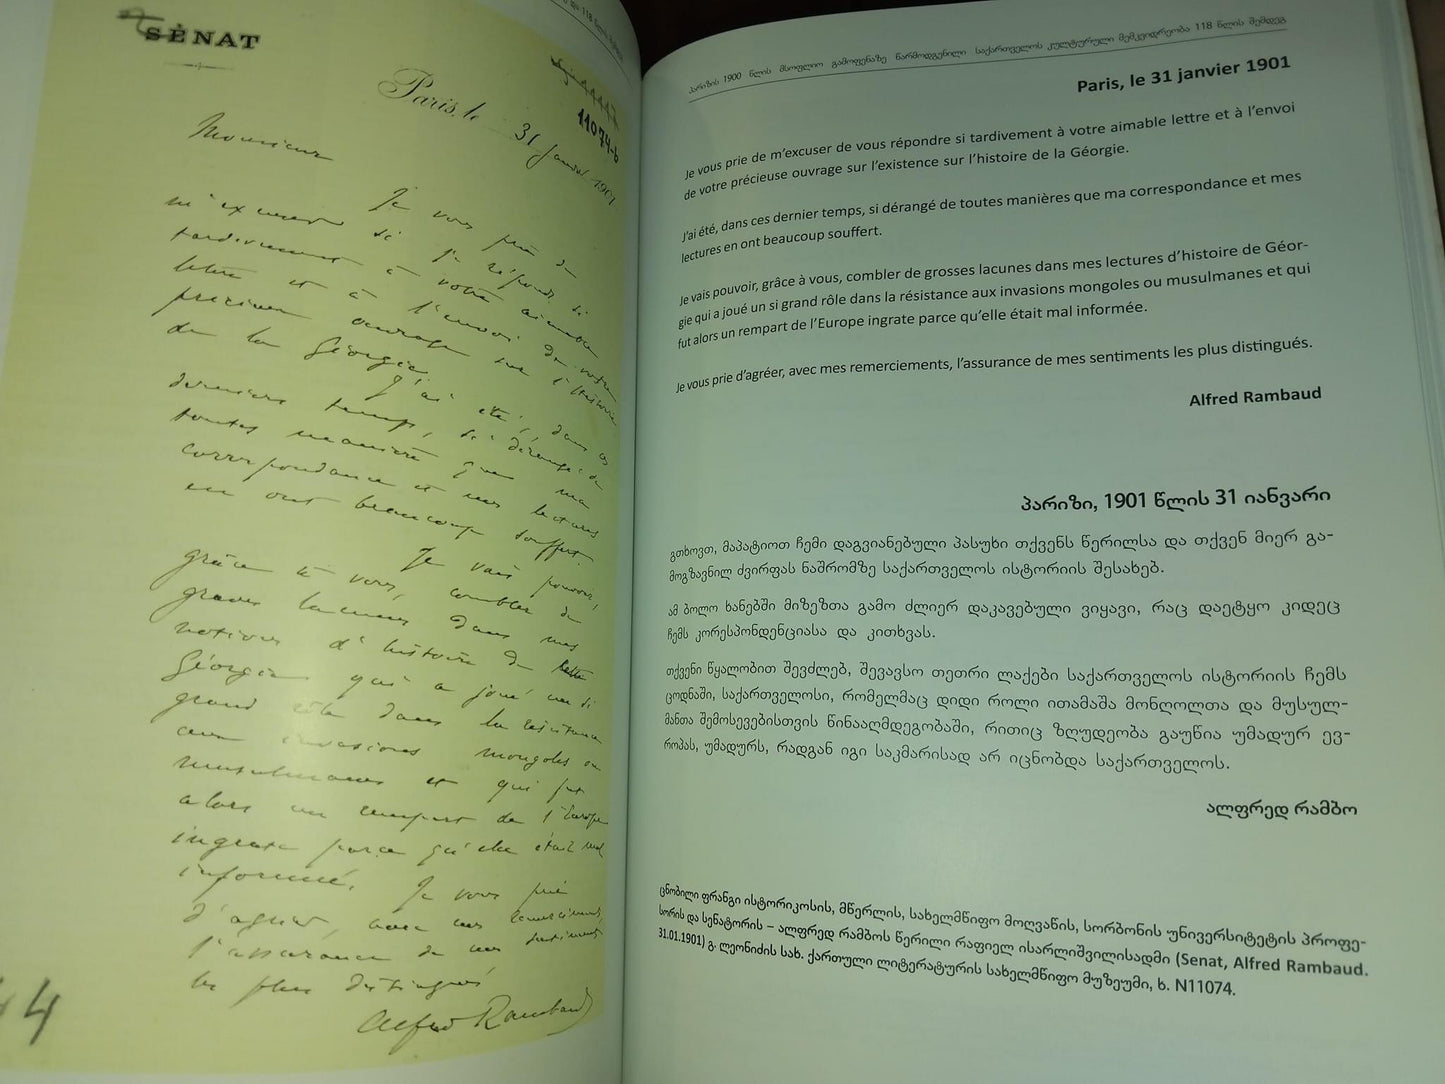 SÉNAT
Paris, le 31 janvier 1901
11074-b
Monsieur
Je vous prie de
m'excuser si je réponds si
tardivement à votre aimable
lettre et à l'envoi de votre
précieux ouvrage sur l'histoire
de la Géorgie.
J'ai été, dans ces
derniers temps, si dérangé de
toutes manières que ma
correspondance et mes lectures
en ont beaucoup souffert.
Je vais pouvoir,
grâce à vous, combler de
graves lacunes dans mes
notions d'histoire de
Géorgie qui a joué un si
grand rôle dans la résistance
aux invasions mongoles ou
musulmanes et qui fut
alors un rempart de l'Europe
ingrate parce qu'elle était mal
informée. Je vous prie
d'agréer, avec mes remerciements,
l'assurance de mes sentiments
les plus distingués
Alfred Rambaud
44
პარიზის 1900 წლის მსოფლიო გამოფენაზე წარმოდგენილი საქართველოს კულტურული მემკვიდრეობა 118 წლის შემდეგ
Paris, le 31 janvier 1901
Je vous prie de m’excuser de vous répondre si tardivement à votre aimable lettre et à l’envoi
de votre précieuse ouvrage sur l’existence sur l’histoire de la Géorgie.
J’ai été, dans ces dernier temps, si dérangé de toutes manières que ma correspondance et mes
lectures en ont beaucoup souffert.
Je vais pouvoir, grâce à vous, combler de grosses lacunes dans mes lectures d’histoire de Géor-
gie qui a joué un si grand rôle dans la résistance aux invasions mongoles ou musulmanes et qui
fut alors un rempart de l’Europe ingrate parce qu’elle était mal informée.
Je vous prie d’agréer, avec mes remerciements, l’assurance de mes sentiments les plus distingués.
Alfred Rambaud
პარიზი, 1901 წლის 31 იანვარი
გთხოვთ, მაპატიოთ ჩემი დაგვიანებული პასუხი თქვენს წერილსა და თქვენ მიერ გა-
მოგზავნილ ძვირფას ნაშრომზე საქართველოს ისტორიის შესახებ.
ამ ბოლო ხანებში მიზეზთა გამო ძლიერ დაკავებული ვიყავი, რაც დაეტყო კიდეც
ჩემს კორესპონდენციასა და კითხვას.
თქვენი წყალობით შევძლებ, შევავსო თეთრი ლაქები საქართველოს ისტორიის ჩემს
ცოდნაში, საქართველოსი, რომელმაც დიდი როლი ითამაშა მონღოლთა და მუსულ-
მანთა შემოსევებისთვის წინააღმდეგობაში, რითიც ზღუდეობა გაუწია უმადურ ევ-
როპას, უმადურს, რადგან იგი საკმარისად არ იცნობდა საქართველოს.
ალფრედ რამბო
ცნობილი ფრანგი ისტორიკოსის, მწერლის, სახელმწიფო მოღვაწის, სორბონის უნივერსიტეტის პროფე-
სორის და სენატორის – ალფრედ რამბოს წერილი რაფიელ ისარლიშვილისადმი (Senat, Alfred Rambaud.
31.01.1901) გ. ლეონიძის სახ. ქართული ლიტერატურის სახელმწიფო მუზეუმი, ხ. N11074.